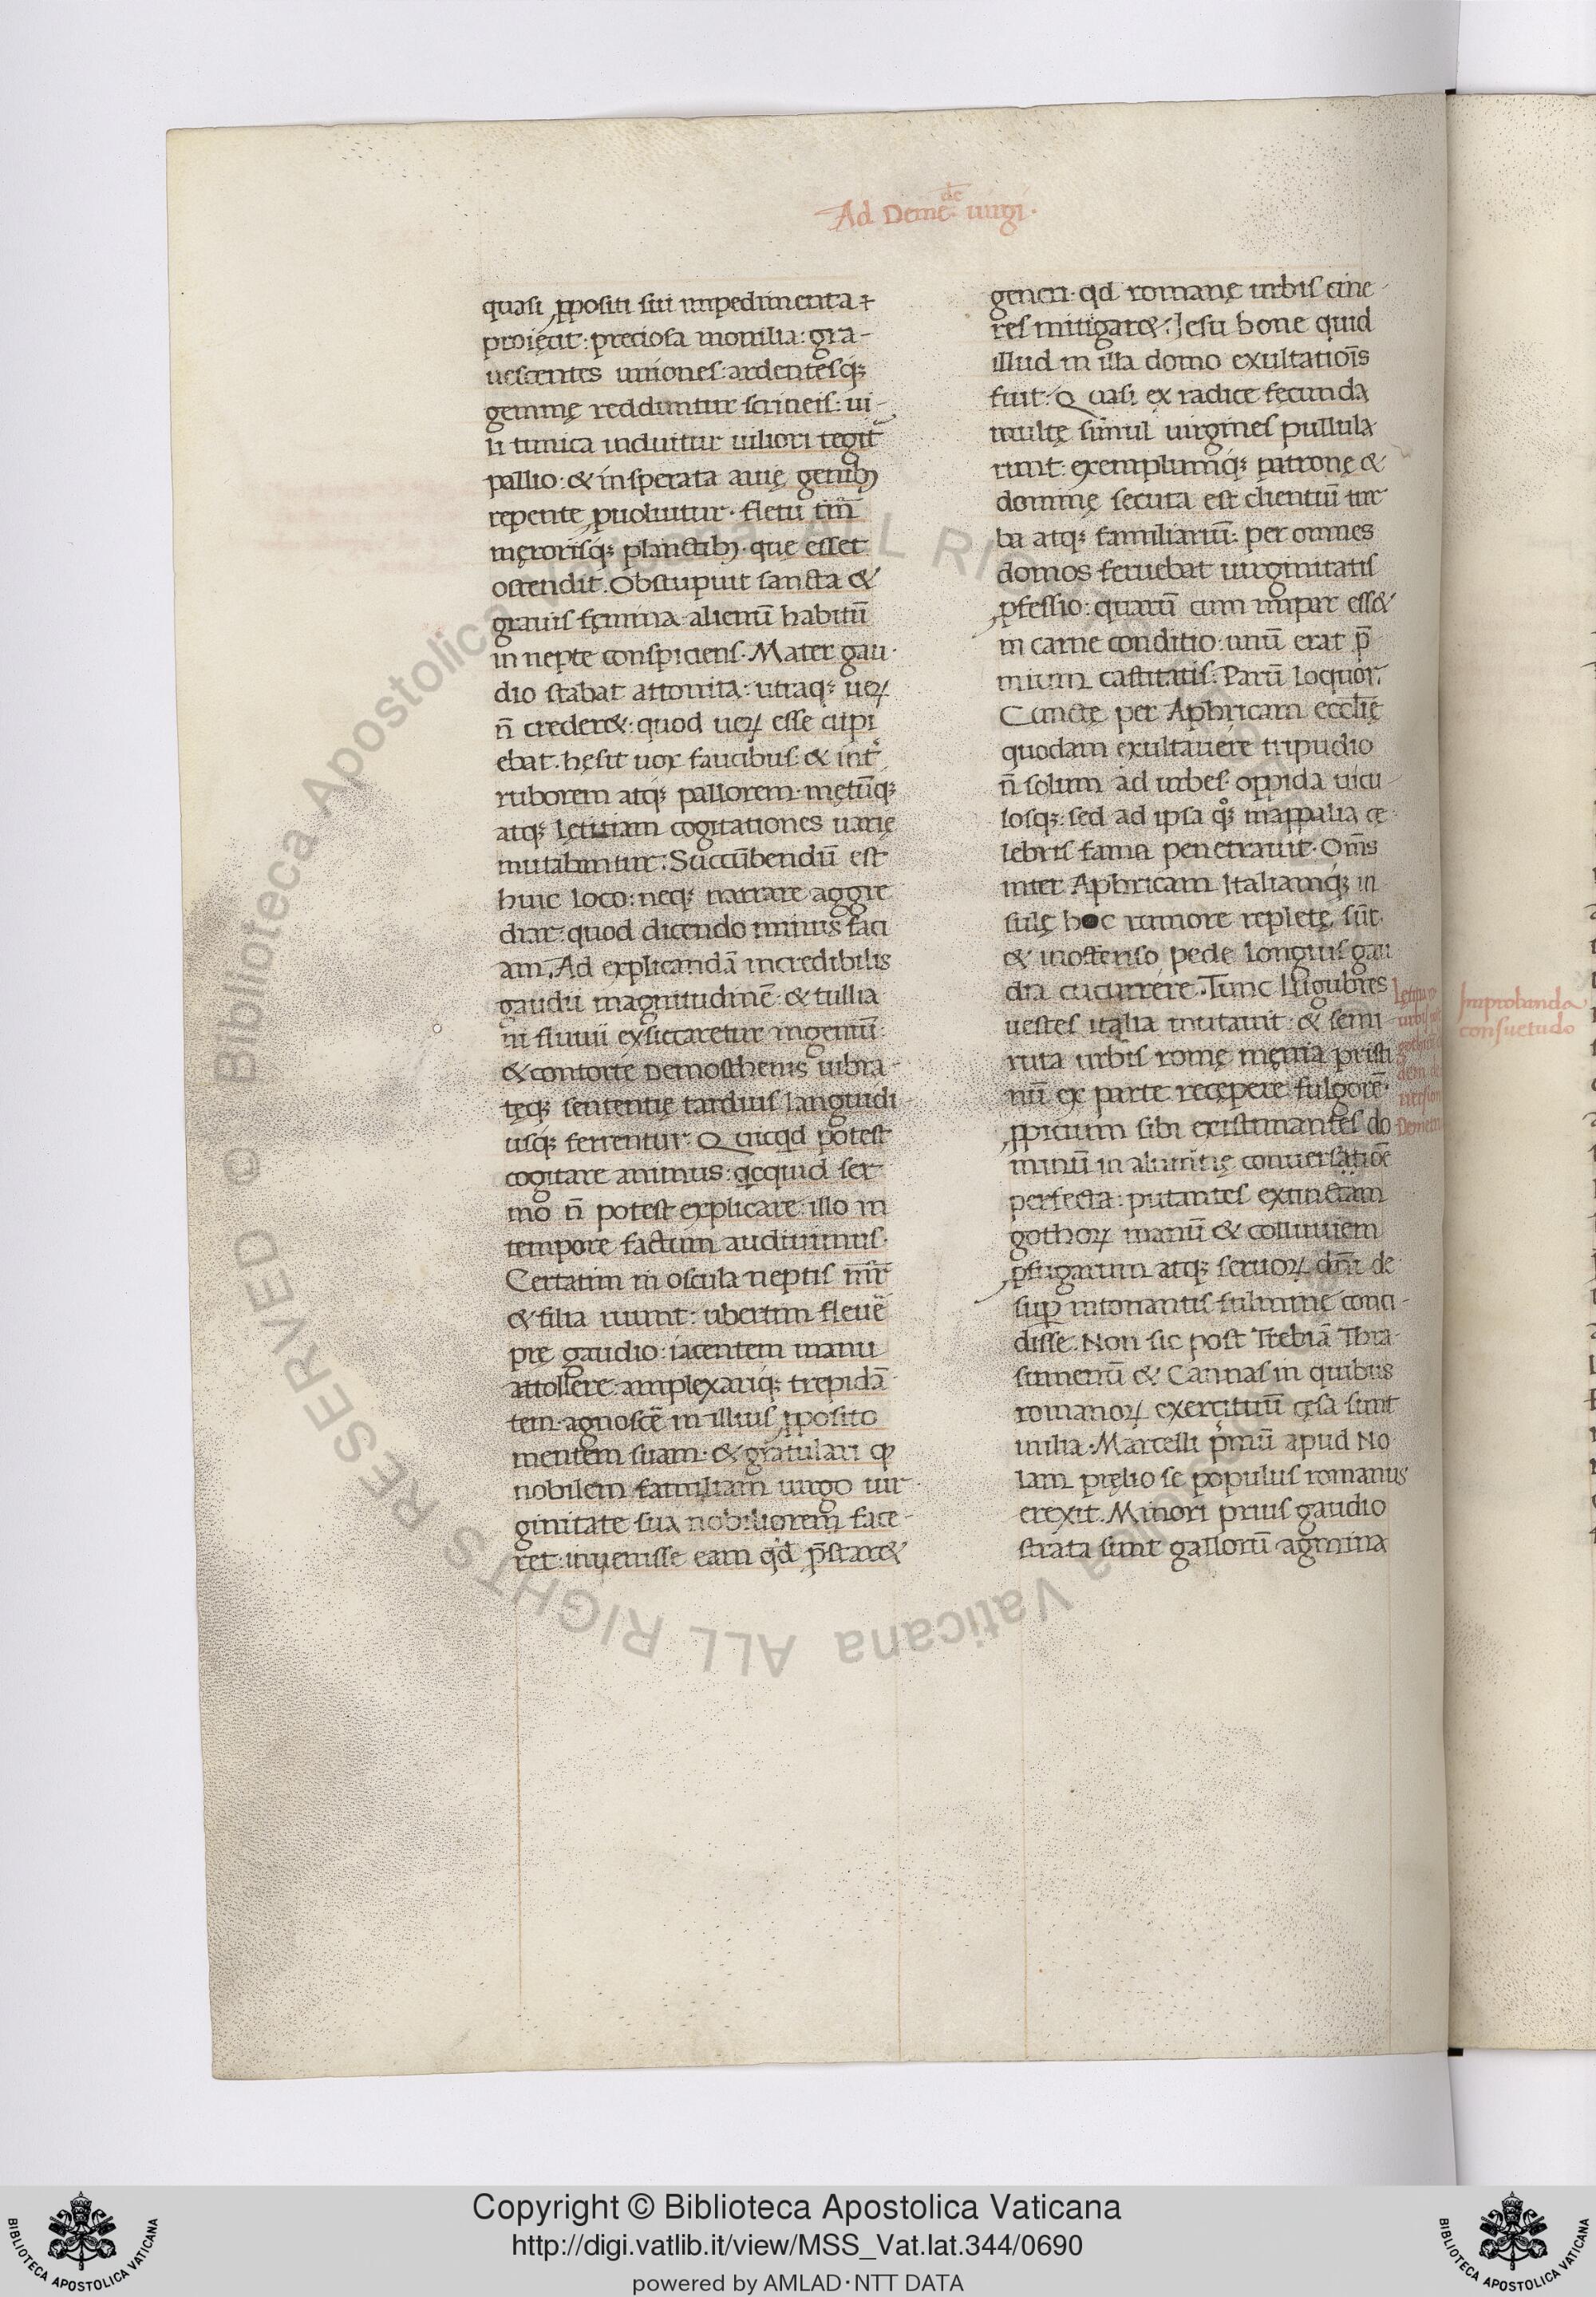 Ad Demt̄de uirgi·
quasi ꝓpositi sui impedimenta ⁊
proięcit: preciosa monilia: gra-
uescentes uniones: ardentesq;
gemmę redduntur scrineis: ui-
li tunica induitur uiliori tegit̄
pallio: & insperata auię genibꝫ
repente ꝓuoluitur· fletu tm̄
męrorisq; planctibꝫ· que esset
ostendit. Obstupuit sancta &
grauis femina alienū habitū
in nepte conspiciens. Mater gau-
dio stabat attonita: utraq; ueꝝ
n̄ creder&: quod ueꝝ esse cupi
ebat. hęsit uox faucibus: & int̄
ruborem atq; pallorem· metūq;
atq; lętitiam cogitationes uarię
mutabuntur: Succūbendū est
huic loco: neq; narrare aggre
diar: quod dicendo minus faci
am. Ad explicandā incredibilis
gaudii magnitudinē· & tullia
ni fluuii exsiccaretur ingeniū:
& contorte Demosthenis uibra-
tęq; sententię tardius languidi-
usq; ferrentur. Quicqd potest
cogitare animus: qcquid ser
mo n̄ potest explicare: illo in
tempore factum audiuimus.
Certatim in oscula neptis mr̄
& filia ruunt: ubertim fleuē
pre gaudio: iacentem manu
attollere: amplexariq; trepidā
tem· agnoscē in illius ꝓposito
mentem suam· & gratulari ꝙ
nobilem familiam uirgo uir
ginitate sua nobiliorem face-
ret: inuenisse eam qd p̄star&
generi· qd romanę urbis cine-
res mitigar&. Iesu bone quid
illud in illa domo exultatiōis
fuit. Quasi ex radice fecunda
multę simul uirgines pullula
runt: exemplumq; patronę &
dominę secuta est clientiū tur
ba atq; familiariū: per omnes
domos feruebat uirginitatis
ꝓfessio: quarū cum impar ess&
in carne conditio· unū erat p̄
mium castitatis. Parū loquor.
Cunctę per Aphricam eccl̄ię
quodam exultauere tripudio
n̄ solum ad urbes· oppida uicu-
losq;: sed ad ipsa qꝫ mappalia ce-
lebris fama penetrauit. Om̄s
inter Aphricam Italiamq; in
sulę hoc rumore repletę sūt·
& inoffenso pede longius gau
dia cucurrere. Tunc lugubres
uestes italia mutauit: & semi-
ruta urbis romę męnia pristi
nū ex parte recepere fulgorē·
ꝓpicium sibi existimantes do
minū in alumnę conuersatiōe
perfecta: putantes extinctam
gothoꝝ manū & colluuiem
ꝓfugarum atq; seruoꝝ dn̄i de
suꝑ intonantis fulmine conci-
disse. Non sic post Trebiā Thra-
simenū & Cannas in quibus
romanoꝝ exercituū cęsa sunt
milia. Marcelli pͥmū apud No
lam prelio se populus romanus
erexit. Minori prius gaudio
strata sunt gallorū agmina
Improbanda
consuetudo
© Biblioteca Apostolica Vaticana ALL RIGHTS RESERVED
Copyright © Biblioteca Apostolica Vaticana
http://digi.vatlib.it/view/MSS_Vat.lat.344/0690
powered by AMLAD·NTT DATA
BIBLIOTECA APOSTOLICA VATICANA
BIBLIOTECA APOSTOLICA VATICANA